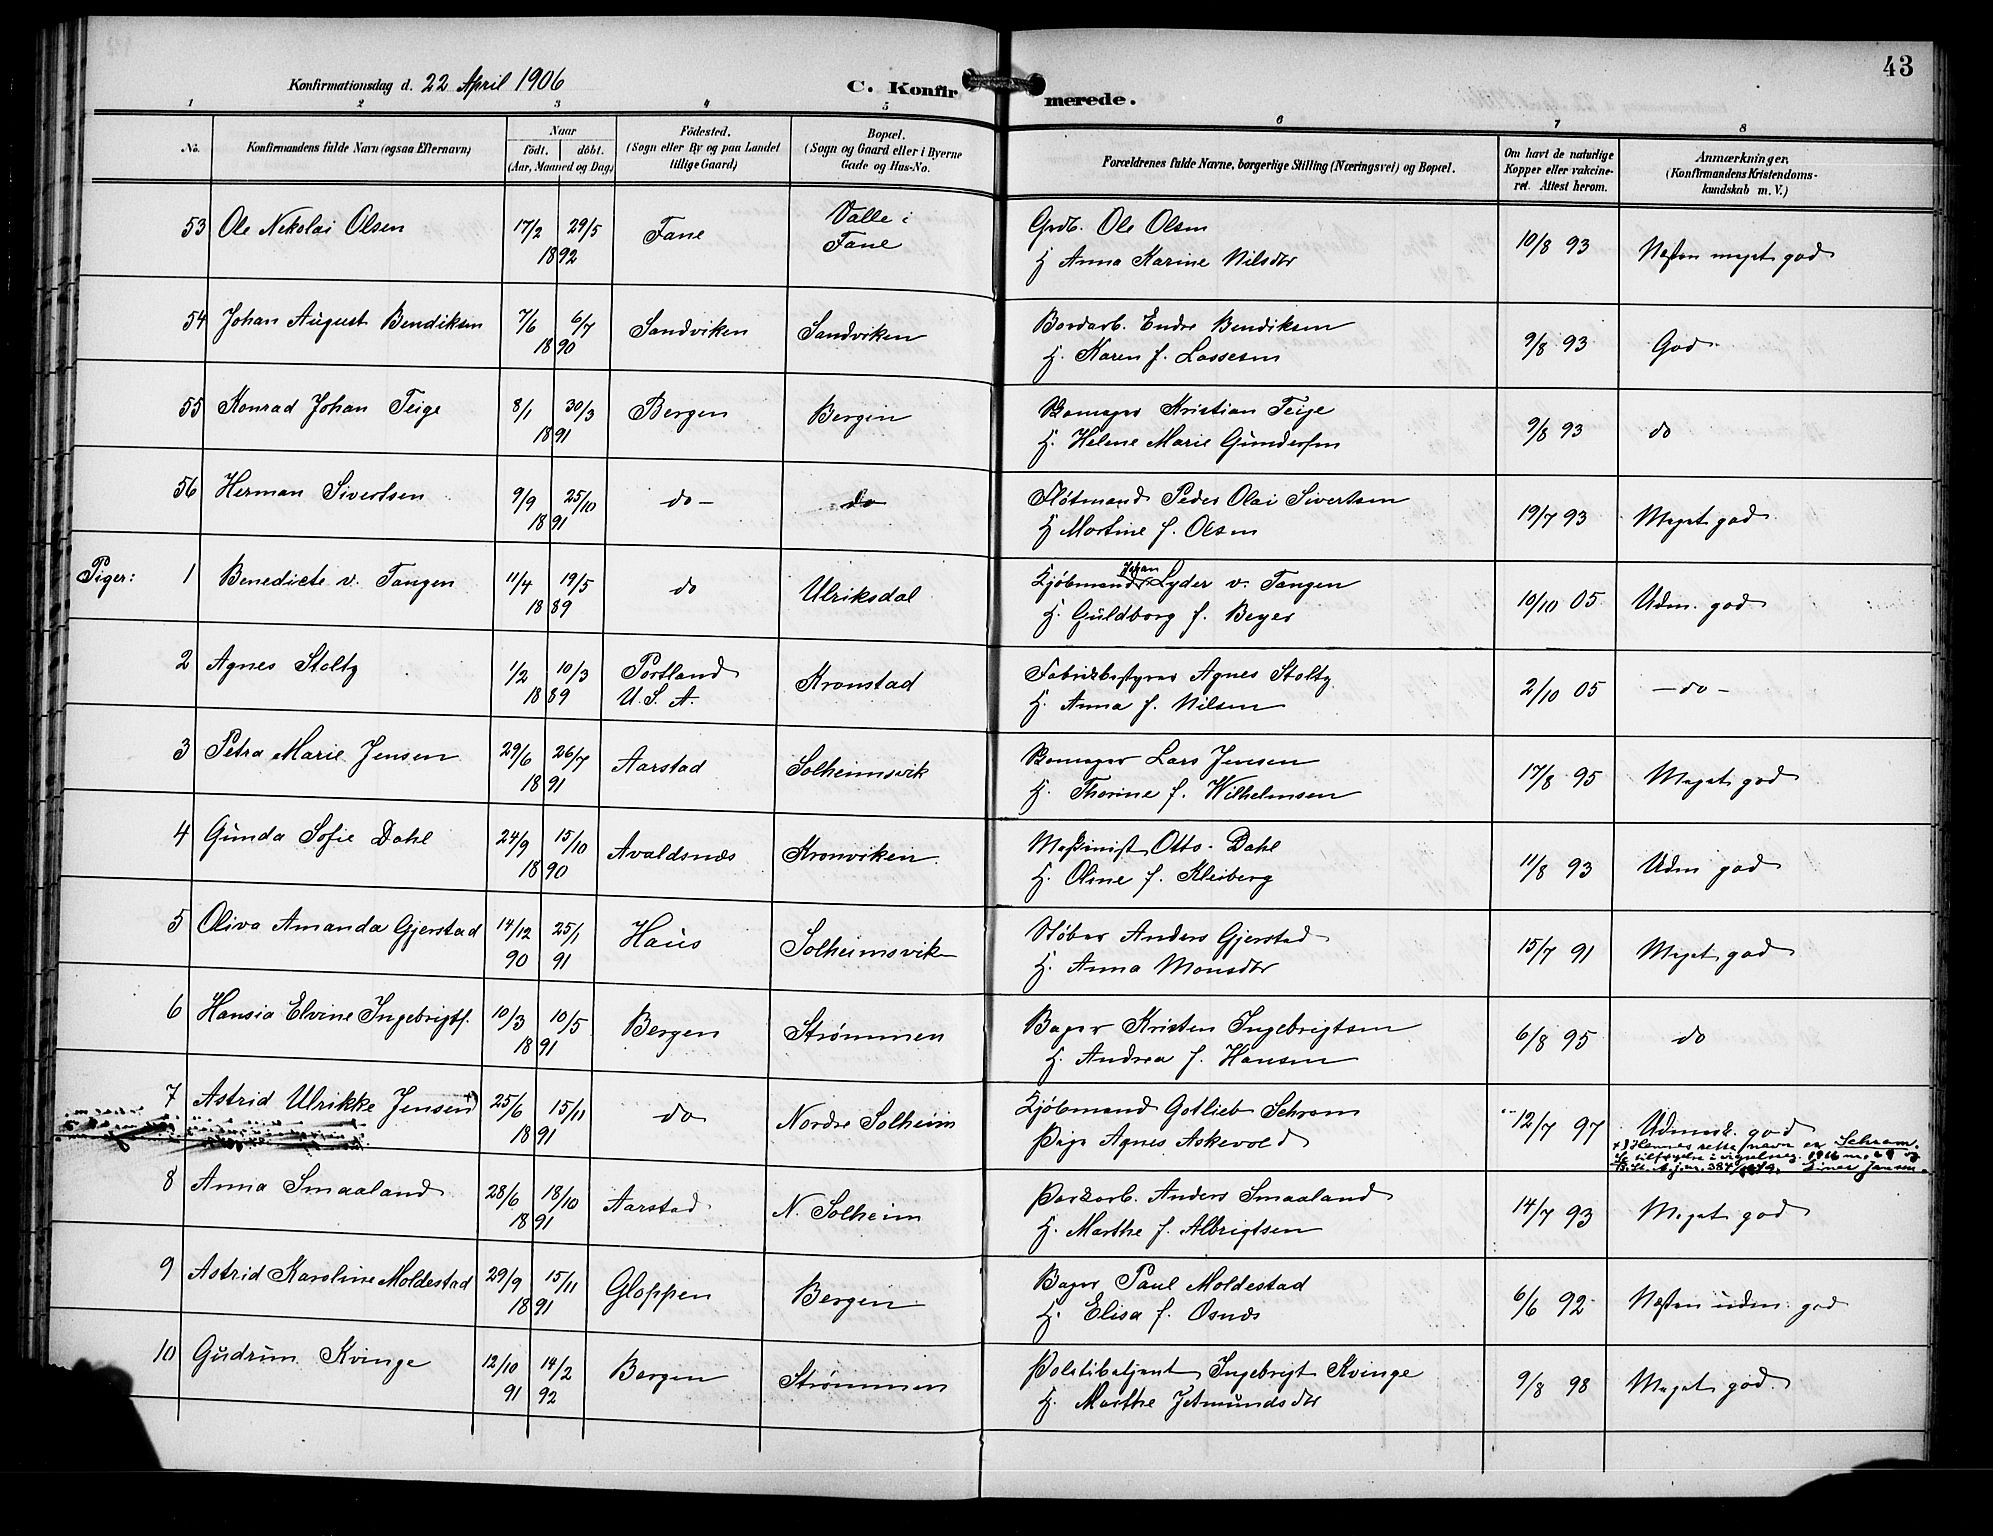 43
Konfirmationsdag d. 22 April 1906
C. Konfirmerede.
1 2 3 4 5 6 7 8
No.
Konfirmandens fulde Navn (ogsaa Efternavn)
Naar
födt. döbt.
(Aar, Maaned og Dag)
Födested.
(Sogn eller By og paa Landet
tillige Gaard)
Bopæl.
(Sogn og Gaard eller i Byerne
Gade og Hus-No.
Forældrenes fulde Navne, borgerlige Stilling (Næringsvei) og Bopæl.
Om havt de naturlige
Kopper eller vakcine-
ret. Attest herom.
Anmærkninger.
(Konfirmandens Kristendoms-
kundskab m. V.)
53 Ole Nikolai Olsen 17/2 29/5 1892 Fane Valle i Fane Grdb. Ole Olsen 10/8 93 Næsten meget god
H Anna Karine Nilsdtr
54 Johan August Bendiksen 7/6 6/7 1890 Sandviken Sandviken Bordarb. Endre Bendiksen 9/8 93 God
H. Karen f. Lassesen
55 Konrad Johan Teige 8/1 30/3 1891 Bergen Bergen Kristian Teige 9/8 93 do
H. Helene Marie Gundersen
56 Herman Sivertsen 9/9 25/10 1891 do do Fløtmand Peder Olai Sivertsen 19/7 93 Meget god
H Martine f. Olsen
Piger: 1 Benedicte v. Tangen 11/4 19/5 1889 do Ulriksdal Kjøbmand Johan Lyder v. Tangen 10/10 05 Udm. god
H. Guldborg f. Beyer
2 Agnes Stoltz 1/2 10/3 1889 Portland U.S.A. Kronstad Fabrikbestyrer Agnes Stoltz 2/10 05 - do -
H. Anna f. Nilsen
3 Petra Marie Jensen 29/6 26/7 1891 Aarstad Solheimsvik Lars Jensen 17/8 95 Meget god
H. Thorine f. Wilhelmsen
4 Gunda Sofie Dahl 24/9 15/10 1890 Avaldsnæs Kronviken Maskinist Otto Dahl 11/8 93 Udm god
H. Oline f. Kleiberg
5 Oliva Amanda Gjerstad 14/12 90 25/1 91 Haus Solheimsvik Støber Anders Gjerstad 15/7 91 Meget god
H. Anna Monsdtr
6 Hansia Elvine Ingebrigts. 10/3 10/5 1891 Bergen Strømmen Bager Kristen Ingebrigtsen 6/8 95 do
H. Andrea f. Hansen
7 Astrid Ulrikke Jensen +) 25/6 15/11 1891 do Nordre Solheim Kjøbmand Gotlieb Schram 12/7 97 Udmerk. god
Pige Agnes Askevold
+) Hennes rette navn er Schram.
8 Anna Smaaland 28/6 18/10 1891 Aarstad N. Solheim Anders Smaaland 14/7 93 Meget god
H. Marthe f. Albrigtsen
9 Astrid Karoline Moldestad 29/9 15/11 1891 Gloppen Bergen Bager Paul Moldestad 6/6 92 Næsten udm. god
H. Elisa f. Osnæs
10 Gudrun Kvinge 12/10 91 14/2 92 Bergen Strømmen Politibetjent Ingebrigt Kvinge 9/8 98 Meget god.
H. Marthe J. Amundsdtr